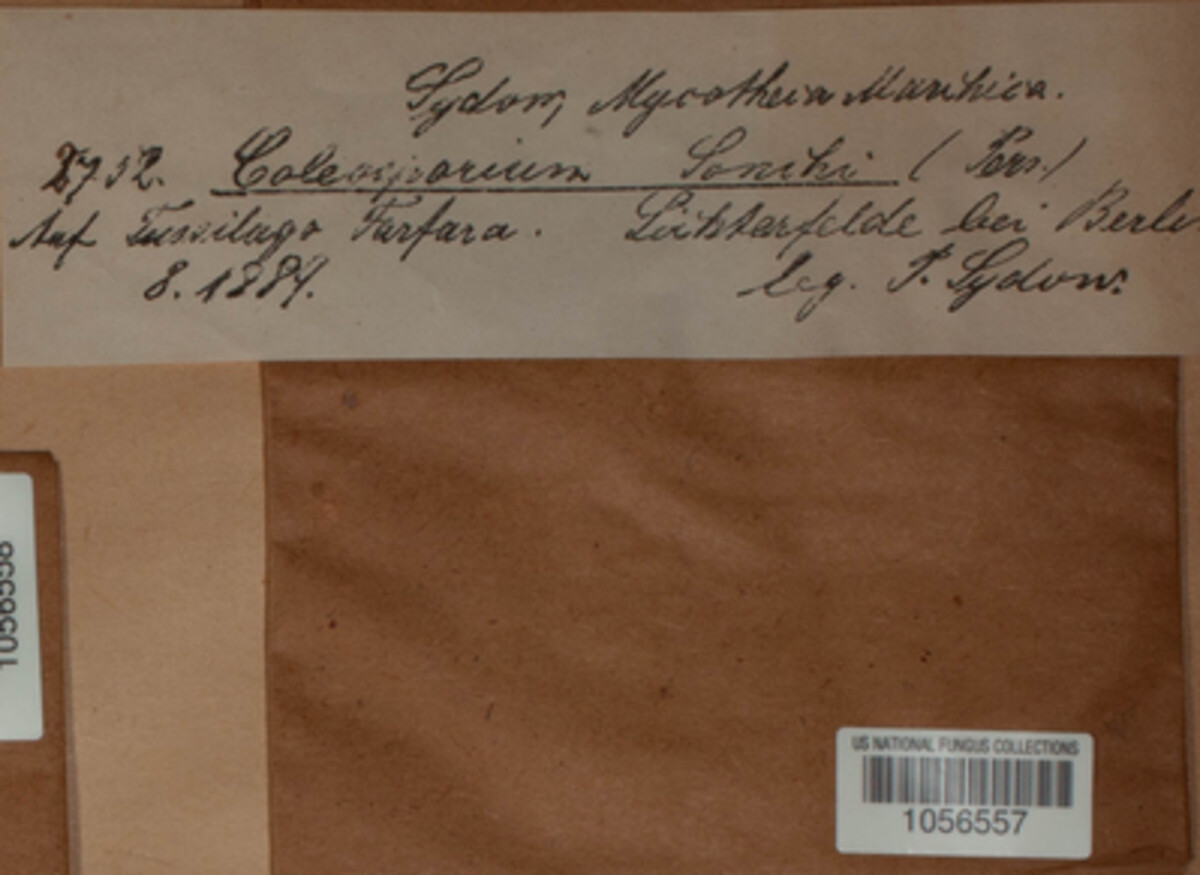 Sydow, Mycotheca Marchica.
2752. Coleosporium Sonchi (Pers.)
Auf Tussilago Farfara. Lichterfelde bei Berlin
8. 1889. leg. P. Sydow.
US NATIONAL FUNGUS COLLECTIONS
1056557
1056558